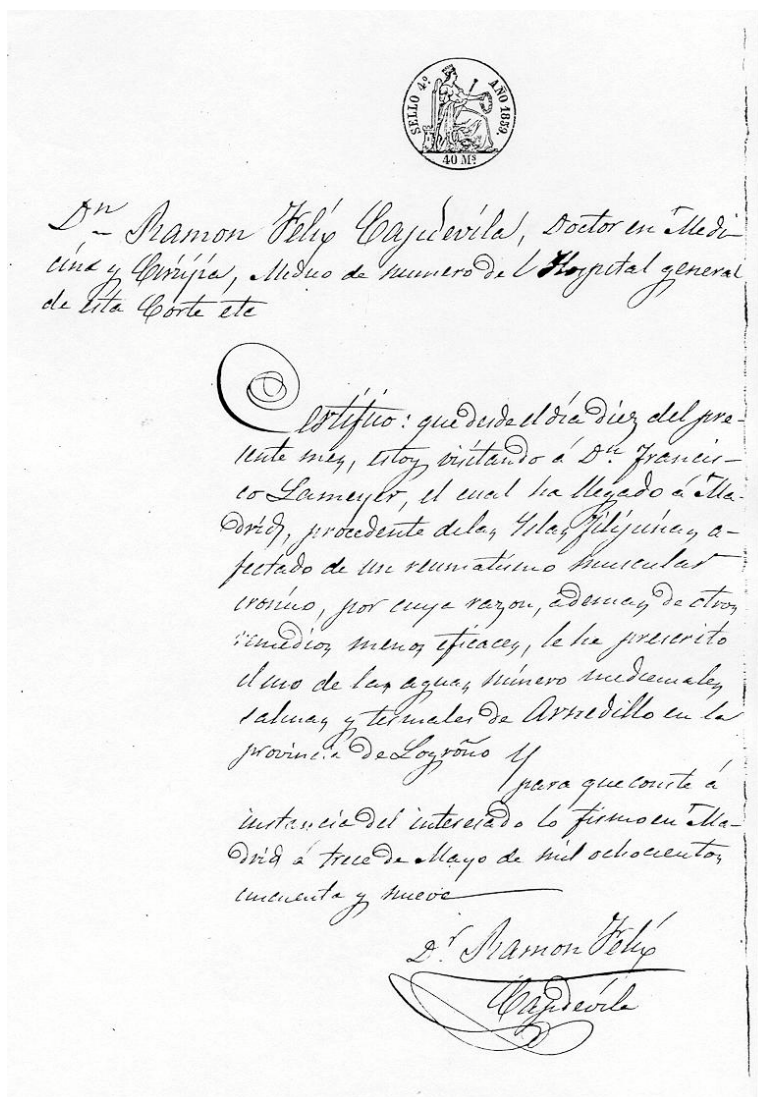 SELLO 4º. AÑO 1859.
40 Ms.
Dn. Ramon Felix Capdevila, Doctor en Medi-
cina y Cirujia, Medico de numero del Hospital general
de esta Corte etc
Certifico: que desde el dia diez del pre-
sente mes, estoy visitando á Dn. Francis-
co Lameyer, el cual ha llegado á Ma-
drid, procedente de las Yslas Filipinas a-
fectado de un reumatismo muscular
cronico, por cuya razon, ademas de otros
remedios menos eficaces, le he prescrito
el uso de las aguas minero medicinales
salinas y termales de Arnedillo en la
provincia de Logroño Y
para que conste á
instancia del interesado lo firmo en Ma-
drid á trece de Mayo de mil ochocientos
cincuenta y nueve
Dr. Ramon Felix
Capdevila